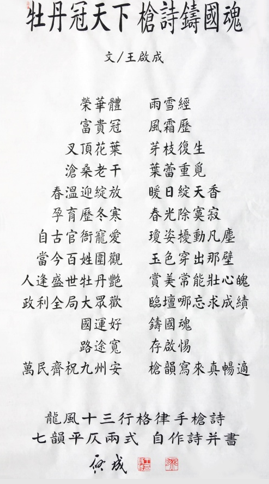 牡丹冠天下 槍詩鑄國魂
文/王啟成
榮華體 雨雪經
富貴冠 風霜歷
叉頂花葉 芽枝復生
滄桑老干 葉蕾重覓
春溫迎綻放 暖日綻天香
孕育歷冬寒 春光除寞寂
自古官衙寵愛 瓊姿擾動凡塵
當今百姓圍觀 玉色穿出那壁
人逢盛世牡丹艷 賞美常能壯心魄
政利全局大眾歡 臨壇哪忘求成績
國運好 鑄國魂
路途寬 存啟惕
萬民齊祝九州安 槍韻寫來真暢適
龍風十三行格律手槍詩
七韻平仄兩式 自作詩并書
啟成